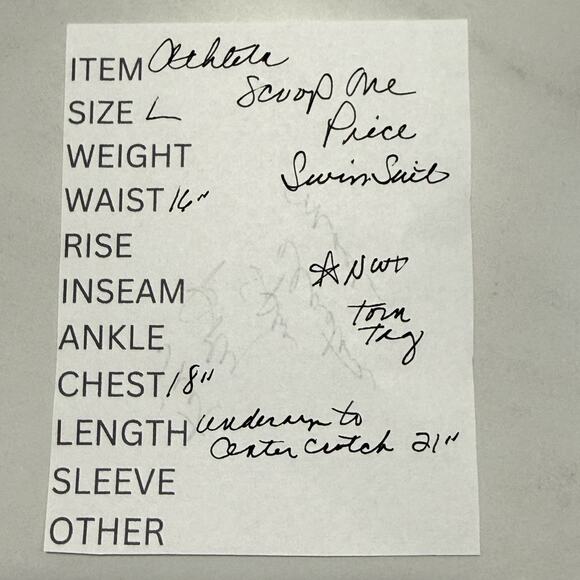 ITEM Athleta
Scoop One
SIZE L
Piece
WEIGHT
Swim Suit
WAIST 16"
RISE
☆ NWT
INSEAM
Torn
Tag
ANKLE
CHEST 18"
LENGTH underarm to
Center Crotch 21"
SLEEVE
OTHER